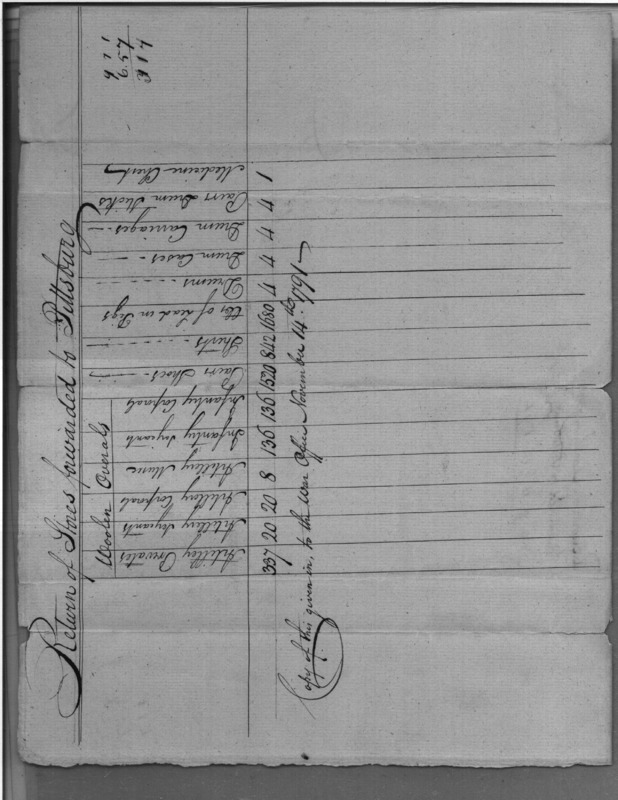 Return of Stores forwarded to Pittsburg
Woolen Overals
Artilley Privates
Artilley Serjeants
Artilley Corporals
Artilley Music
Infantry Serjeants
Infantry Corporals
Pairs Shoes
Shirts
lbs of Lead in Pigs
Drums
Drum Cases
Drum Carriages
Pairs Drum Sticks
Medicine Chest
337 20 20 8 136 136 1520 842 1680 4 4 4 4 1
Copy of this given in, to the War Office November 14th 1791
657
314